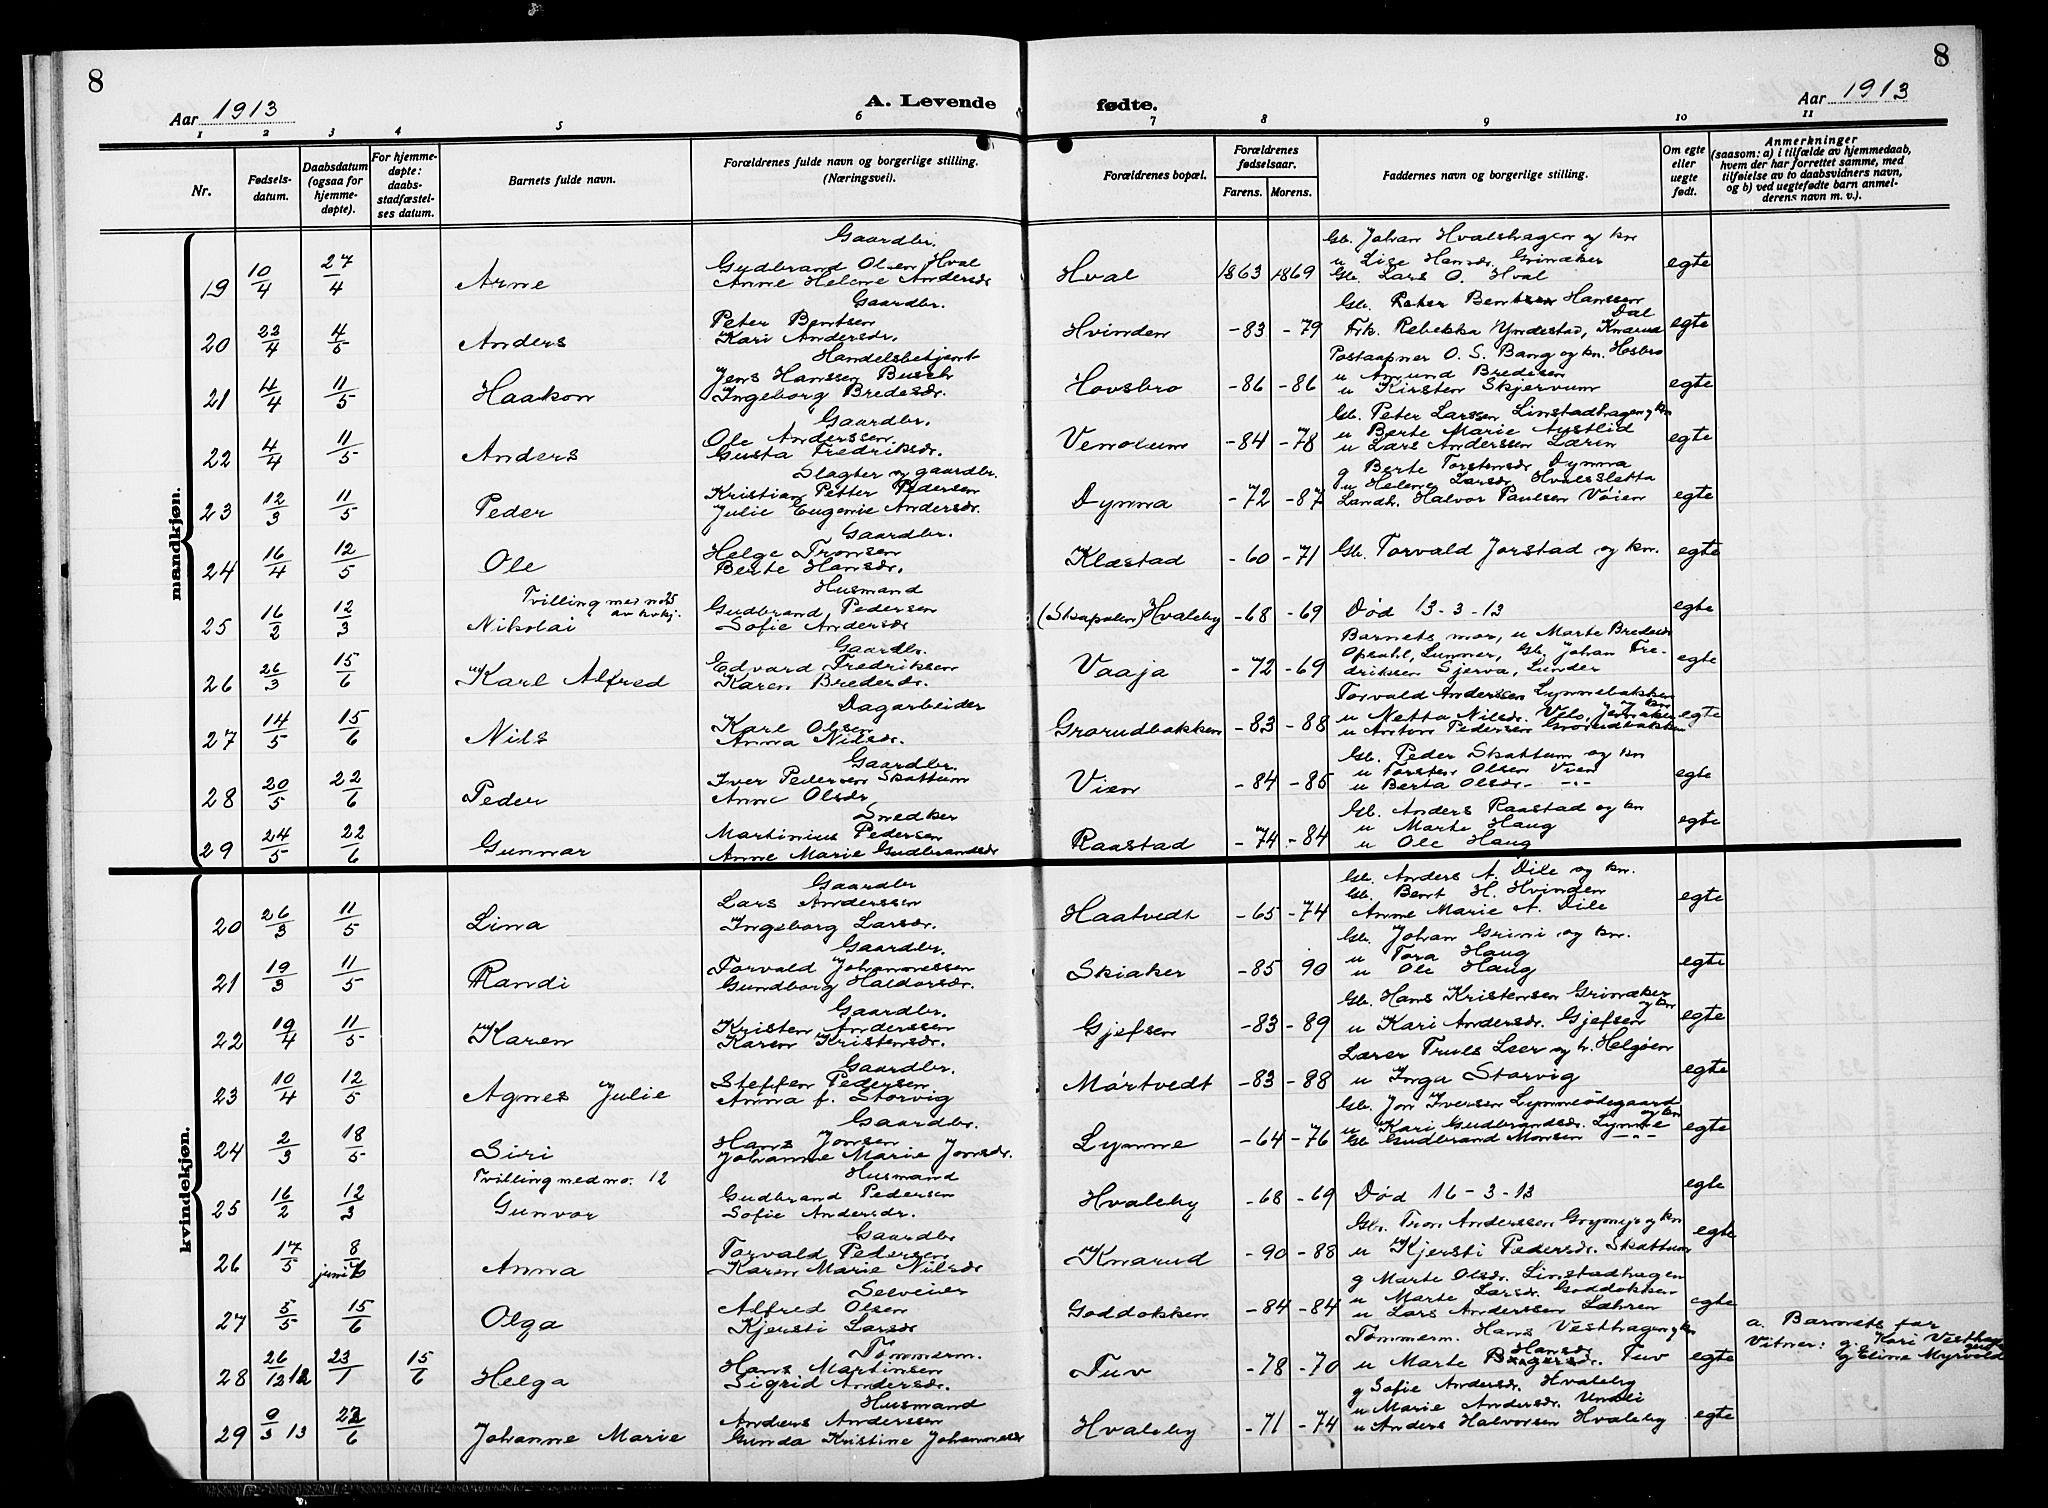 8
8
Aar 1913
A. Levende fødte.
Aar 1913
1 2 3 4 5 6 7 8 9 10 11
Nr.
Fødsels-
datum.
Daabsdatum
(ogsaa for
hjemme-
døpte).
For hjemme-
døpte:
daabs-
stadfæstel-
ses datum.
Barnets fulde navn.
Forældrenes fulde navn og borgerlige stilling.
(Næringsvei).
Forældrenes bopæl.
Forældrenes
fødselsaar.
Farens. Morens.
Faddernes navn og borgerlige stilling.
Om egte
eller
uegte
født.
Anmerkninger
(saasom: a) i tilfælde av hjemmedaab,
hvem der har forrettet samme, med
tilføielse av to daabsvidners navn,
og b) ved uegtefødte barn anmel-
derens navn m. v.).
mandkjøn.
19 10/4 27/4 Arne
Gaardbr.
Gudbrand Olsen Hval
Anne Helene Andersdr
Hval 1863 1869
Gb. Johan Hvalshagen og kn
u Lise Hansdr. Grinaker
Gb. Lars O. Hval
egte
20 22/4 4/5 Anders
Gaardbr.
Peter Bentsen
Kari Andersdr.
Hvinden -83 -79
Gb. Peter Bentsen Hanssen
Dal
Frk. Rebekka Yndestad, Knarud
egte
21 4/4 11/5 Haakon
Handelsbetjent
Jens Hanssen Busch
Ingeborg Bredesdr.
Hovsbro -86 -86
Postaapner O. S. Bang og kn. Hosbro
u Amund Bredesen
u Kirsten Skjervum
egte
22 4/4 11/5 Anders
Gaardbr.
Ole Anderssen.
Gusta Fredriksdr.
Venolum -84 -78
Gb. Peter Larssen Linstadhagen og kn
u Berte Marie Austlid
u Lars Anderssen Læren
egte
23 12/3 11/5 Peder
Slagter og gaardbr.
Kristian Petter Pedersen
Julie Eugenie Andersdr.
Dynna -72 -87
g Berte Torstensdr Dynna
gu Helene Larsdr Hvalssletta
Landh. Halvor Paulsen Vøien
egte
24 16/4 12/5 Ole
Gaardbr.
Helge Tronsen
Berte Hansdr.
Klæstad -60 -71
Gb. Torvald Jorstad og kn.
egte
25 16/2 12/3
Tvilling med no 25
av kvkj.
Nikolai
Husmand
Gudbrand Pedersen
Sofie Andersdr
(Skapalen) Hvaleby -68 -69
Død 13-3-13
egte
26 26/3 15/6 Karl Alfred
Gaardbr.
Edvard Fredriksen
Karen Bredesdr.
Vaaja -72 -69
Barnets mor, u Marte Bredesdr
Opsahl, Lunner, Gb. Johan Fre-
driksen Gjerva, Lunder
egte
27 14/5 15/6 Nils
Dagarbeider
Karl Olsen
Anna Nilsdr.
Grorudbakken -83 -88
Torvald Anderssen Lynnebakken
og kn
u Netta Nilsdr. Velo, Jevnaker
u Anton Pedersen Grorudbakken
egte
28 20/5 22/6 Peder
Gaardbr.
Iver Pedersen Skattum
Anne Olsdr
Vien -84 -85
Gb. Peder Skattum og kn
u Torsten Olsen Vien
u Berta Olsdr. -"-
egte
29 24/5 22/6 Gunnar
Snedker
Martinius Pedersen
Anne Marie Gudbrandsdr
Raastad -74 -84
Gb. Anders Raastad og kn
u Marte Haug
u Ole Haug
egte
kvindekjøn.
20 26/3 11/5 Lina
Gaardbr
Lars Anderssen
Ingeborg Larsdr.
Haatvedt -65 -74
Gb. Anders A. Dile og kn.
Gb. Bent H. Hvinden
Anne Marie A. Dile
egte
21 19/3 11/5 Randi
Gaardbr.
Torvald Johannessen
Gundborg Haldorsdr.
Skiaker -85 90
Gb. Johan Grini og kn.
u Tora Haug
u Ole Haug
egte
22 19/4 11/5 Karen
Gaardbr.
Kristen Anderssen
Karen Kristensdr.
Gjefsen -83 -89
Gb. Hans Kristensen Grinaker
og kn
u Kari Andersdr. Gjefsen
egte
23 10/4 12/5 Agnes Julie
Gaardbr.
Steffen Pedersen.
Anna f. Storvig
Mårtvedt -83 -88
Lærer Truls Leer og h. Helgøen
u Inga Storvig
egte
24 2/3 18/5 Siri
Gaardbr.
Hans Jonsen
Johanne Marie Jonsdr.
Lynne -64 -76
Gb. Jon Iversen Lynneødegaard
og kn
u Kari Gudbrandsdr. Lynne
Gb Gudbrand Monsen -"-
egte
25 16/2 12/3
Tvilling med no. 12
Gunvor
Husmand
Gudbrand Pedersen
Sofie Andersdr.
Hvaleby -68 -69
Død 16-3-13
egte
26 17/5 8/6 juni Anna
Gaardbr
Torvald Pedersen
Karen Marie Nilsdr
Knarud -90 -88
Gbr. Tron Anderssen Grymyr og kn
u Kjersti Pedersdr. Skattum
egte
27 5/5 15/6 Olga
Selveier
Alfred Olsen
Kjersti Larsdr
Goddokken -84 -84
g Marte Olsdr. Linstadhagen
u Marte Larsdr. Goddokken
u Lars Anderssen Læhren
egte
28 26/12 12 23/1 15/6 Helga
Tømmerm.
Hans Martinsen
Sigrid Andersdr.
Tuv -78 -70
Tømmerm. Hans Vesthagen og kn
Hansdr
u Marte Tuv
g Sofie Andersdr. Hvaleby
egte
a. Barnets far
Vitner: g. Kari Vesthagen
g Eline Myrvold
29 9/3 13 22/6 Johanne Marie
Husmand
Anders Anderssen
Gunda Kristine Johannesdr
Hvaleby -71 -74
u Marie Andersdr. Undli
u Anders Halvorsen Hvaleby
egte